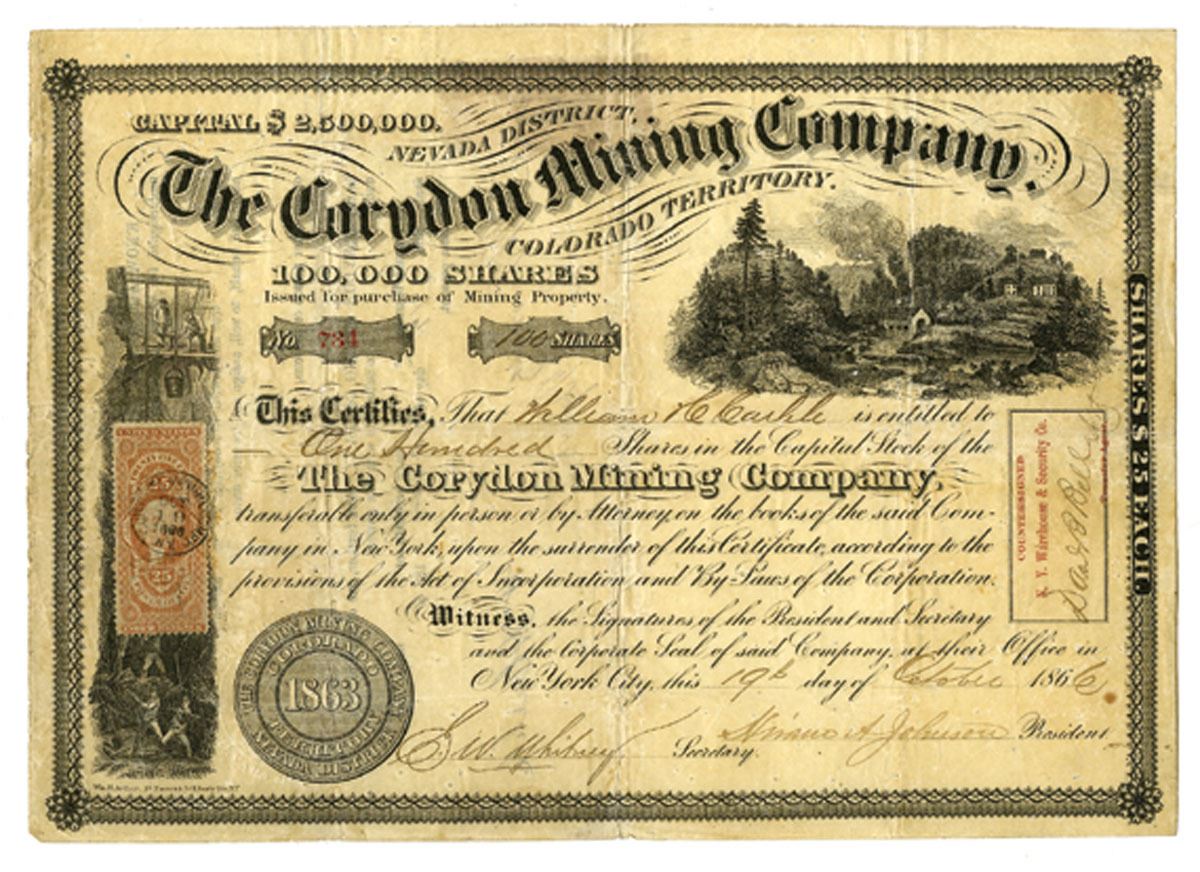 CAPITAL $2,500,000.
NEVADA DISTRICT,
The Corydon Mining Company.
COLORADO TERRITORY.
100,000 SHARES
Issued for purchase of Mining Property.
No. 734
100 SHARES
SHARES $25 EACH
This Certifies, That William H Carhle is entitled to
One Hundred Shares in the Capital Stock of the
The Corydon Mining Company,
transferable only in person or by Attorney, on the books of the said Com-
pany in New York, upon the surrender of this Certificate, according to the
provisions of the Act of Incorporation and By-Laws of the Corporation.
Witness, the Signatures of the President and Secretary
and the Corporate Seal of said Company, at their Office in
New York City, this 19th day of October 1866
E. W. Whitney Secretary. Hiram A. Johnson President
COUNTERSIGNED
N. Y. Warehouse & Security Co.
THE CORYDON MINING COMPANY
COLORADO
1863
TERRITORY
NEVADA DISTRICT
25
25